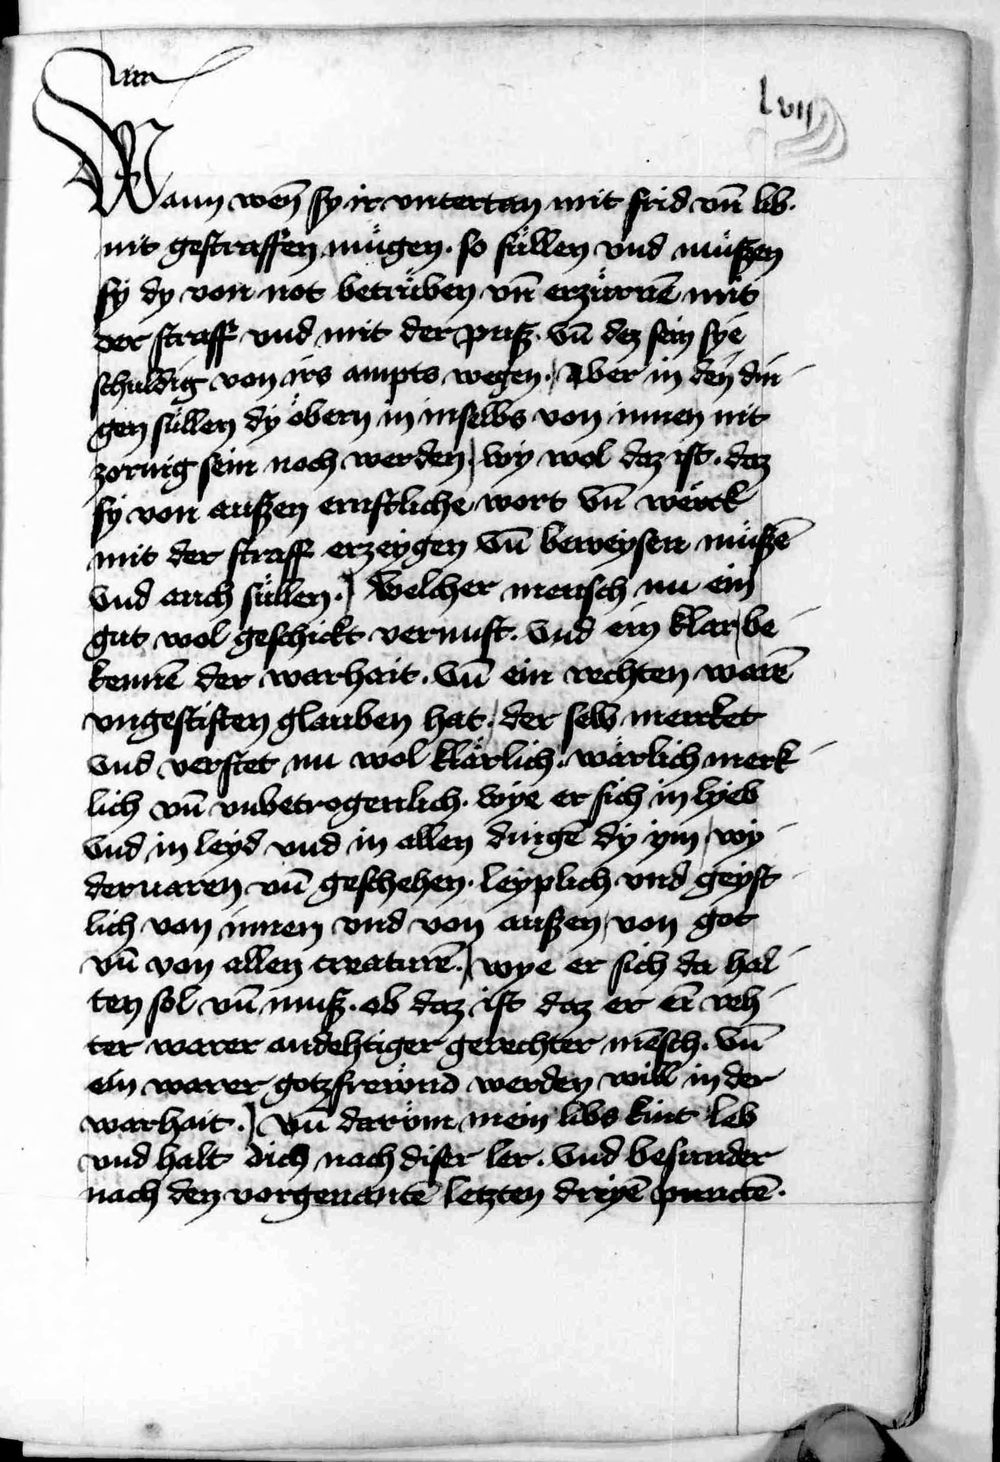 lvij
Wann wen̄ sy ir vntertan mit frid vn̄ lib.
nit gestraffen mügen. so süllen vnd müßen
sy dy von not betrüben vn̄ erzürnē mit
der straff vnd mit der puß. vn̄ dez sein sye
schuldig von irs ampts wegen. Aber in den din
gen süllen dy öbern in inselbs von innen nit
zornig sein noch werden, wy wol daz ist. daz
sy von außen ernstliche wort vn̄ werck
mit der straff erzeygen vn̄ beweysen müßē
vnd auch süllen. Welcher mensch nu ein
gut wol geschickt vernuft. vnd ein klar be
kennē der warhait. vn̄ ein rechten warē
vngestiften glauben hat. der selb mercket
vnd verstet nu wol klärlich. wärlich merk
lich vn̄ vnbetrogenlich. wye er sich in lyeb
vnd in leyd vnd in allen dingē dy ym wy
deruaren vn̄ geschehen. leyplich vnd geyst
lich von innen vnd von außen von got
vn̄ von allen creaturē. wye er sich da hal
ten sol vn̄ muß. ob daz ist daz er ein reh
ter warer andehtiger gerechter mēsch. vn̄
ein warer gotzfreẅnd werden will in der
warhait. Vn̄ darüm mein libs kint leb
vnd halt dich nach diser ler. vnd besunder
nach den vorgenantē letzten dreyē punctē.